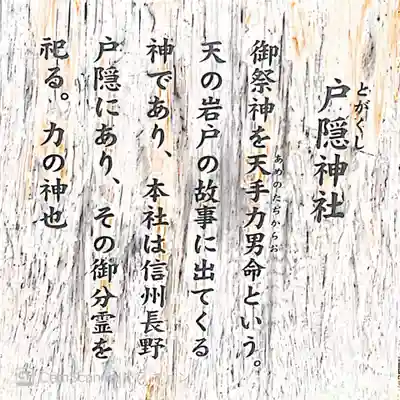 戸隠神社
とがくし
御祭神を天手力男命という。
あめのたぢからお
天の岩戸の故事に出てくる
神であり、本社は信州長野
戸隠にあり、その御分霊を
祀る。力の神也